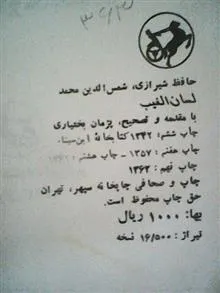 حافظ شیرازی، شمس‌الدین محمد
لسان‌الغیب
با مقدمه و تصحیح، پژمان بختیاری
چاپ ششم: ۱۳۴۲ کتابخانه ابن‌سینا.
چاپ هفتم: ۱۳۵۷ - چاپ هشتم:
چاپ نهم: ۱۳۶۳
چاپ و صحافی چاپخانه سپهر، تهران
حق چاپ محفوظ است.
بها: ۱۰۰۰ ریال
تیراژ: ۱۶/۵۰۰ نسخه